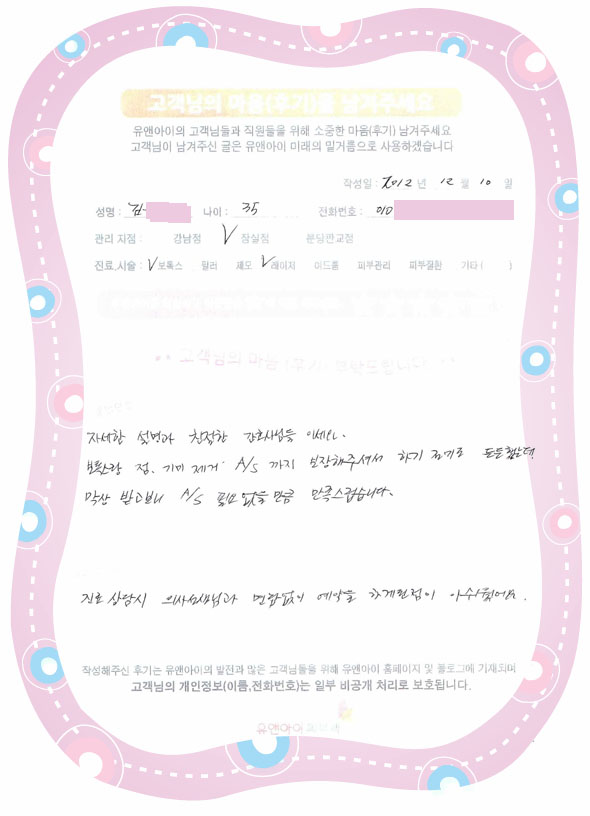 고객님의 마음(후기)을 남겨주세요
유앤아이의 고객님들과 직원들을 위해 소중한 마음(후기) 남겨주세요
고객님이 남겨주신 글은 유앤아이 미래의 밑거름으로 사용하겠습니다
작성일 : 2012 년 12 월 10 일
성명 : 김 나이 : 35 전화번호 : 010
관리 지점 : 강남점 V 잠실점 분당판교점
진료,시술 : V 보톡스 필러 제모 V 레이저 여드름 피부관리 피부질환 기타 ( )
고객님의 마음 (후기) 부탁드립니다
자세한 설명과 친절한 간호사님들 이세요.
보톡스랑 점, 기미 제거 A/S 까지 보장해주셔서 하기 전기로 든든했는데
막상 받고보니 A/S 필요 없을만큼 만족스럽습니다.
진료 상담시 의사선생님과 면담없이 예약을 하게된점이 아쉬웠어요.
작성해주신 후기는 유앤아이의 발전과 많은 고객님들을 위해 유앤아이 홈페이지 및 블로그에 기재되며
고객님의 개인정보(이름,전화번호)는 일부 비공개 처리로 보호됩니다.
유앤아이